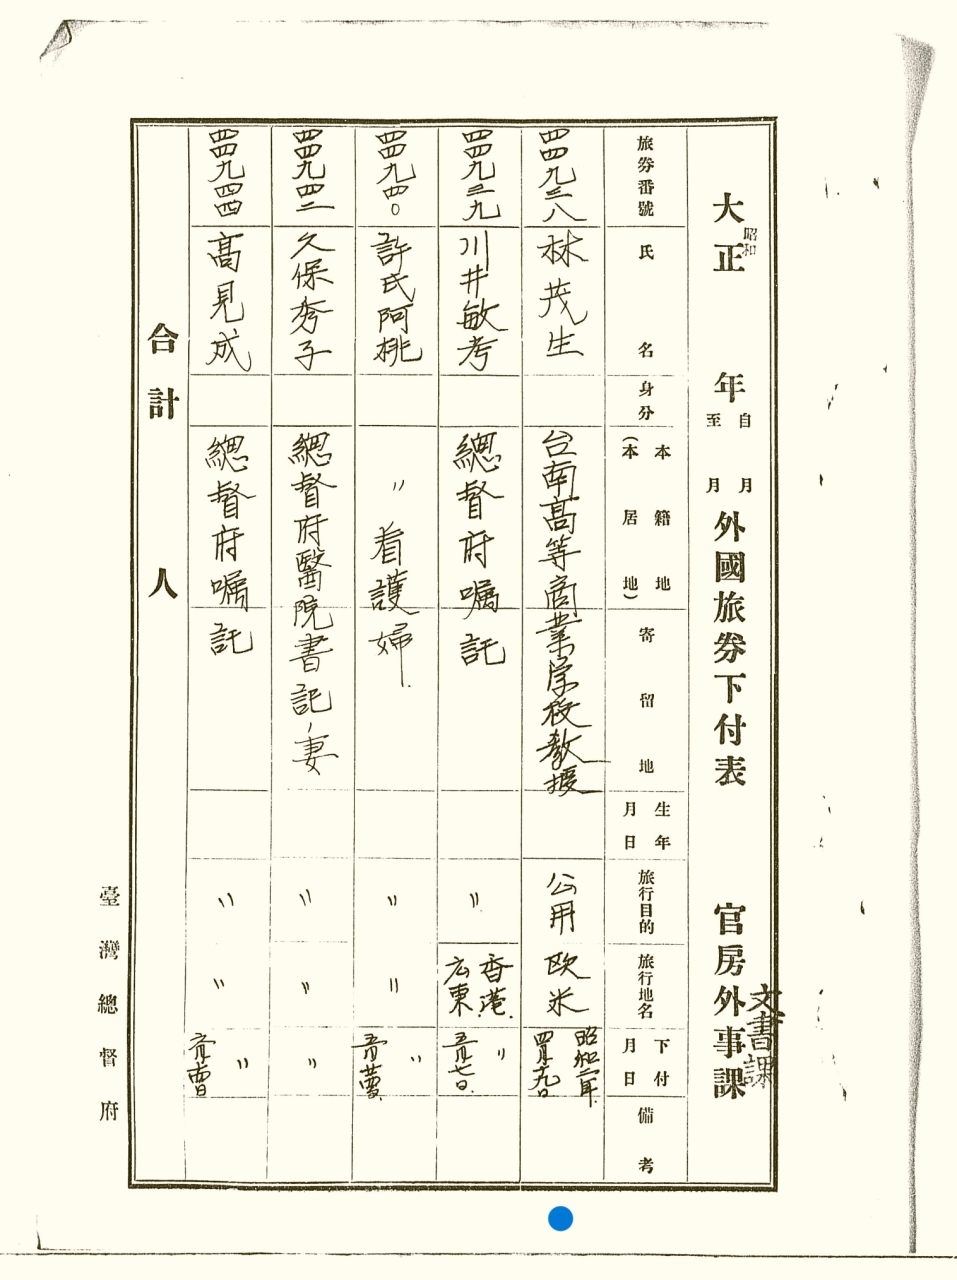 大正 年 自 月 至 月 外國旅券下付表 官房外事課
昭和
文書課
旅券番號 氏名 身分 本籍地(本居地) 寄留地 生年月日 旅行目的 旅行地名 下付月日 備考
四四九三八 林茂生 台南高等商業学校教授 公用 欧米 昭和二年四月十九日
四四九三九 川井敏考 總督府嘱託 〃 香港.広東 〃
四四九四〇 許氏阿桃 〃看護婦. 〃 〃 〃
四四九四二 久保秀子 總督府醫院書記ノ妻 〃 〃 〃
四四九四四 高見成 總督府嘱託 〃 〃 〃
合計 人
臺灣總督府